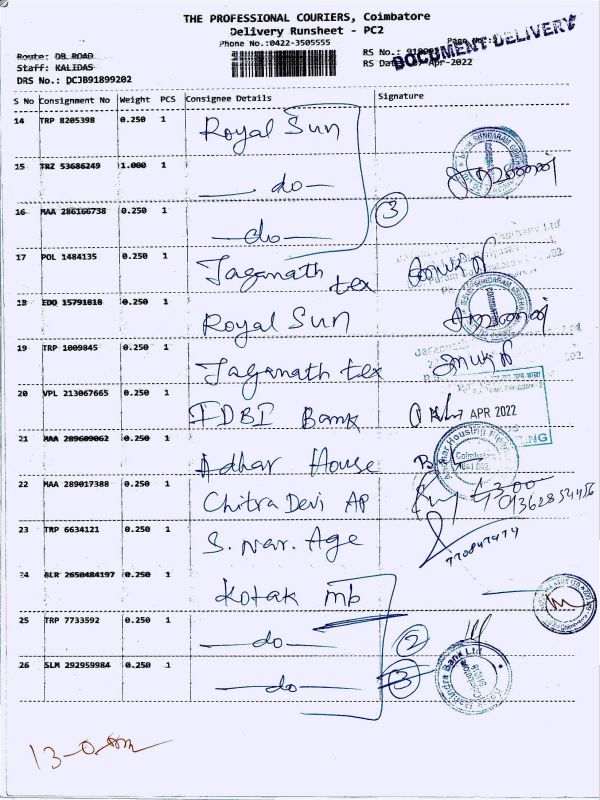 THE PROFESSIONAL COURIERS, Coimbatore
Delivery Runsheet - PC2
Phone No.:0422-3505555
DOCUMENT DELIVERY
Route: DB ROAD
Staff: KALIDAS
DRS No.: DCJB91899202
RS No.:
RS Date: Apr-2022
S No Consignment No Weight PCS Consignee Details Signature
14 TRP 8205398 0.250 1 Royal Sun
15 TRZ 53686249 1.000 1 do
16 MAA 286166738 0.250 1 do
3
17 POL 1484135 0.250 1 Jaganath tex
18 EDO 15791818 0.250 1 Royal Sun
19 TRP 1009845 0.250 1 Jaganath tex
20 VPL 213067665 0.250 1 IDBI Bank
7 APR 2022
21 MAA 289609062 0.250 1 Adhar House
22 MAA 289017388 0.250 1 Chitra Devi AP
23 TRP 6634121 0.250 1 S. Nar. Age
24 BLR 2650484197 0.250 1 Kotak mb
25 TRP 7733592 0.250 1 do
2
26 SLM 292959984 0.250 1 do
3